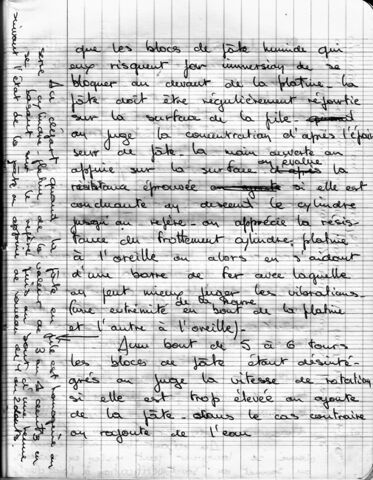 que les blocs de pâte humide qui
eux risquent par immersion de se
bloquer au devant de la platine. La
pâte doit être régulièrement repartie
sur la surface de la pile
on juge la concentration d'après l'épais
seur de pâte la main ouverte on
appuie sur la surface on évalue
la résistance éprouvée si elle est
concluante on descend le cylindre
jusqu'au repère on apprécie la résis-
tance du frottement cylindre, platine
à l'oreille ou alors en s'aidant
d'une barre de fer avec laquelle
on peut mieux juger les vibrations
(une extrémité de la barre en bout de la platine
et l'autre à l'oreille).
Au bout de 5 à 6 tours
les blocs de pâte étant désinté-
grés on juge la vitesse de rotation
si elle est trop élevée on ajoute
de la pâte dans le cas contraire
on rajoute de l'eau
Au départ quand la pâte en
pile est homogène on
cylindre platine de la valeur de 3 ou 4 dents en
se basant sur le repère puis au bout d'un moment
suivant l'état de la pâte on